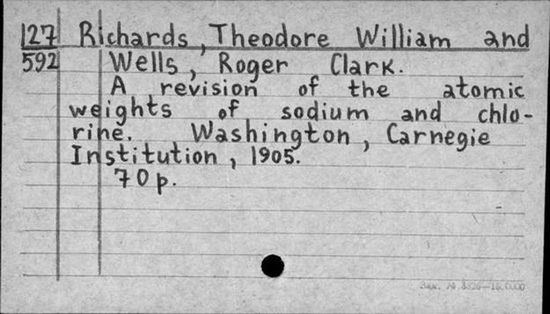 127 Richards, Theodore William and
592 Wells, Roger Clark.
A revision of the atomic
weights of sodium and chlo-
rine. Washington, Carnegie
Institution, 1905.
70p.